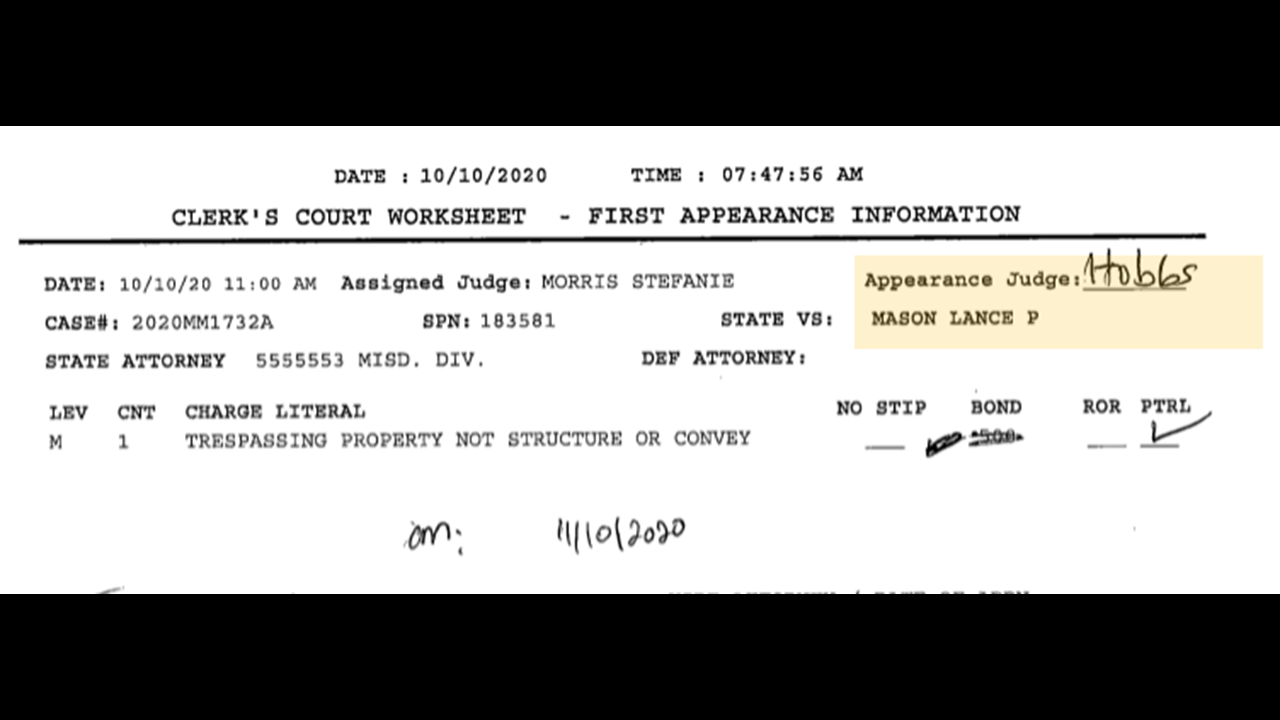 DATE : 10/10/2020 TIME : 07:47:56 AM
CLERK'S COURT WORKSHEET - FIRST APPEARANCE INFORMATION
DATE: 10/10/20 11:00 AM Assigned Judge: MORRIS STEFANIE Appearance Judge: Hobbs
CASE#: 2020MM1732A SPN: 183581 STATE VS: MASON LANCE P
STATE ATTORNEY 5555553 MISD. DIV. DEF ATTORNEY:
LEV CNT CHARGE LITERAL NO STIP BOND ROR PTRL
M 1 TRESPASSING PROPERTY NOT STRUCTURE OR CONVEY 500
cm: 11/10/2020